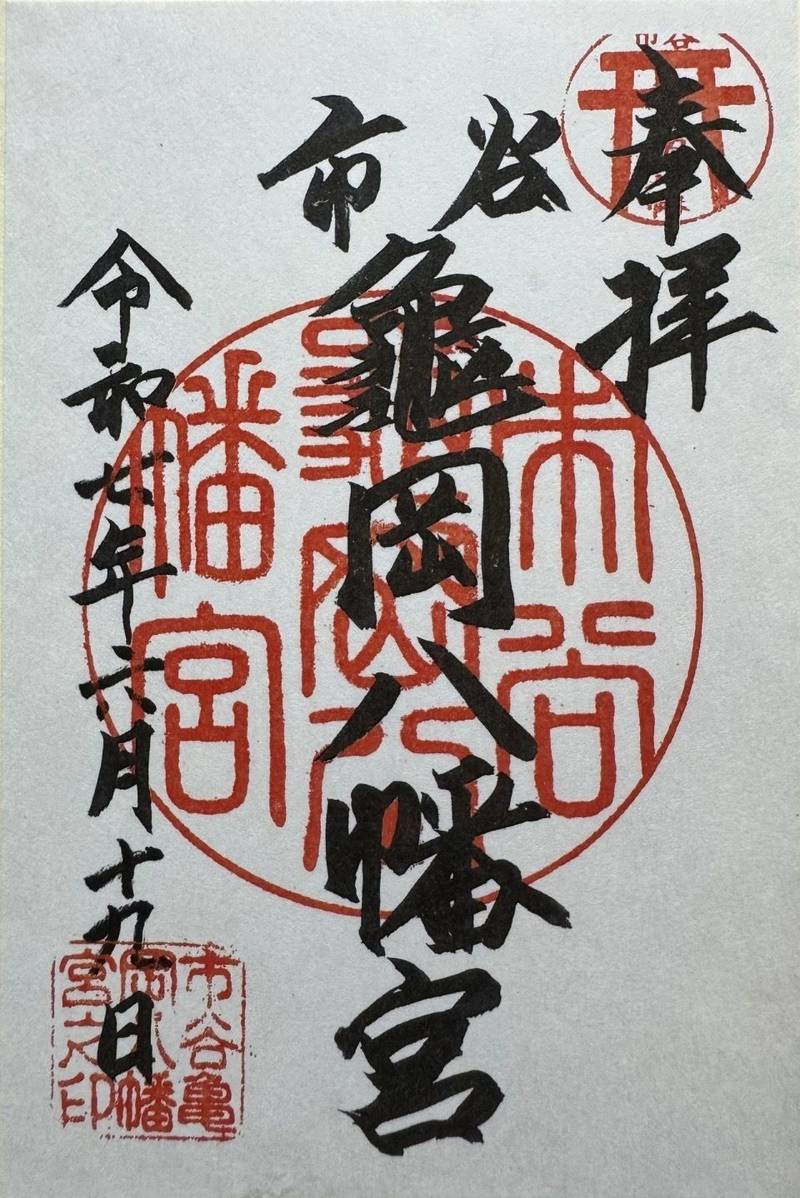 奉拝
市谷
龜岡八幡宮
令和七年六月十九日
市谷
龜岡八
幡宮
市谷亀
岡八幡
宮之印